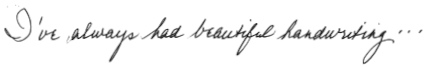 I've always had beautiful handwriting...